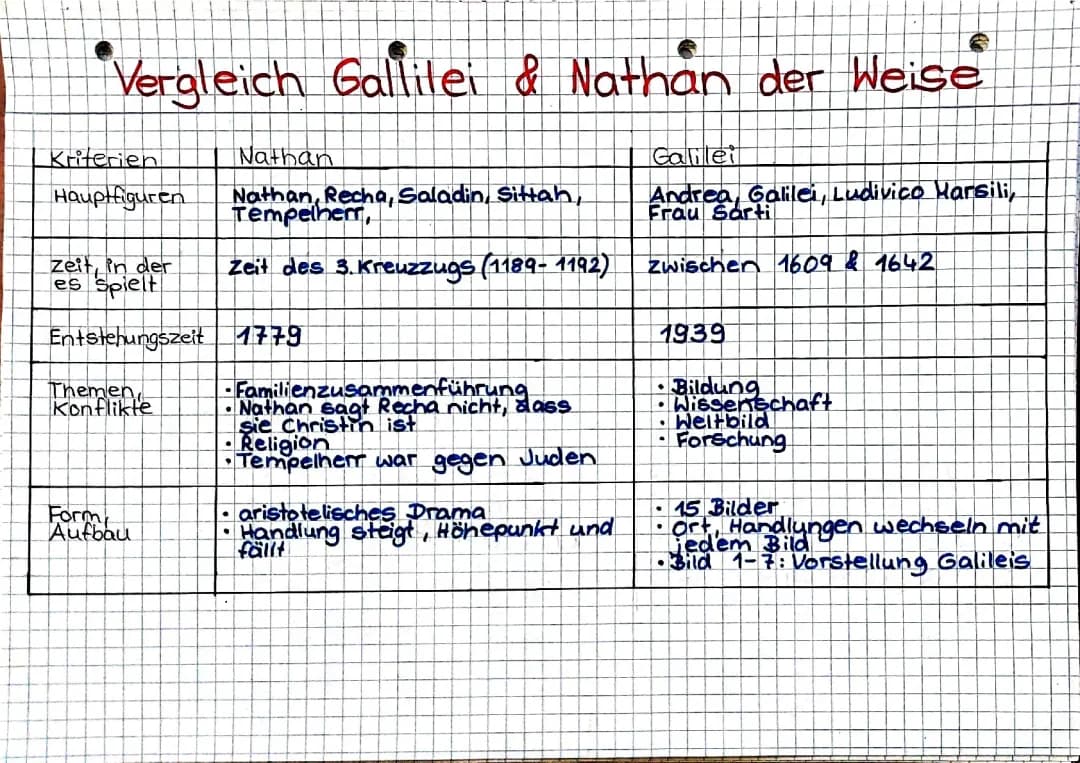 Vergleich Gallilei & Nathan der Weise
Kriterien
Nathan
Galilei
Hauptfiguren
Nathan, Recha, Saladin, Sittah,
Tempelherr,
Andrea, Galilei, Ludivico Marsili,
Frau Sarti
Zeit, in der
es spielt
Zeit des 3. Kreuzzugs (1189-1192)
zwischen 1609 & 1642
Entstehungszeit
1779
1939
Themen,
Konflikte
· Familienzusammenführung
· Nathan sagt Recha nicht, dass
sie Christin ist
· Religion
· Tempelherr war gegen Juden
· Bildung
· Wissenschaft
· Weltbild
· Forschung
Form,
Aufbau
· aristotelisches Drama
· Handlung steigt, Höhepunkt und
fällt
· 15 Bilder
· Ort, Handlungen wechseln mit
jedem Bild
· Bild 1-7: Vorstellung Galileis